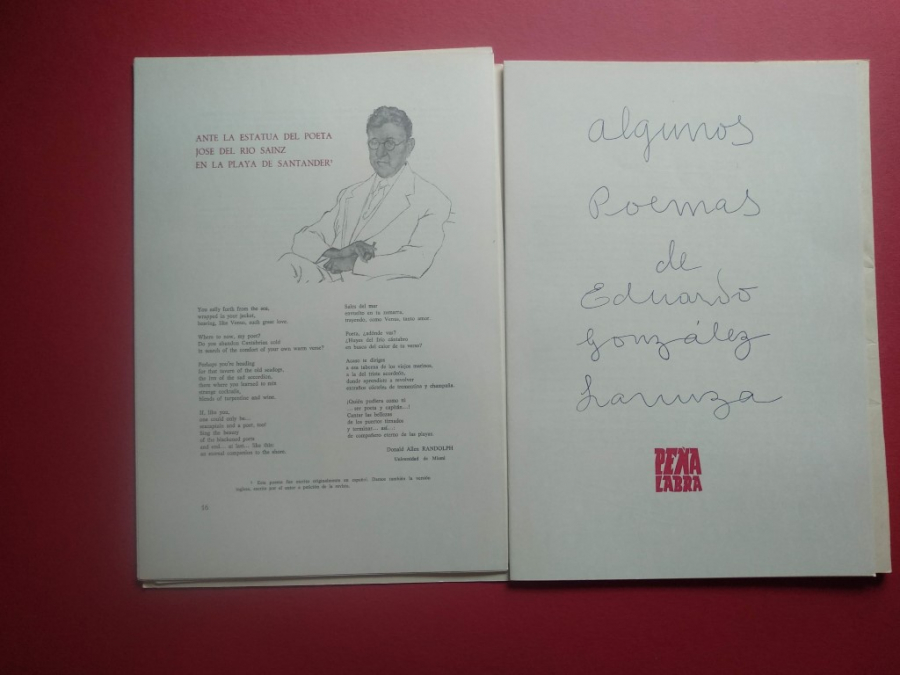 ANTE LA ESTATUA DEL POETA
JOSE DEL RIO SAINZ
EN LA PLAYA DE SANTANDER*
You sally forth from the sea,
wrapped in your jacket,
bearing, like Venus, such great love.
Where to now, my poet?
Do you abandon Cantabrian cold
in search of the comfort of your own warm verse?
Perhaps you're heading
for that tavern of the old seadogs,
the one of the sad accordion,
there where you learned to mix
strange cocktails,
blends of turpentine and wine.
If, like you,
one could only be...
seacaptain and a poet, and
sing the beauty
of the blackened ports
and end... at last... like this:
an eternal companion to the shore.
Sales del mar
envuelto en tu zamarra
trayendo, como Venus, tanto amor.
Poeta, ¿adónde vas?
¿Huyes del frío cántabro
en busca del calor de tu verso?
Acaso te diriges
a esa taberna de los viejos marinos,
a la del triste acordeón,
donde aprendiste a mezclar
extraños cócteles, de trementina y champaña.
¡Quién pudiera como tú
... ser poeta y capitán...!
Cantar las bellezas
de los puertos tiznados
y terminar... así...:
de compañero eterno de las playas.
Donald Allen RANDOLPH
Universidad de Miami
* Este poema fue escrito originalmente en español. Damos también la versión
inglesa, escrita por el autor a petición de la revista.
algunos
Poemas
de
Eduardo
González
Lanuza
PEÑA
LABRA